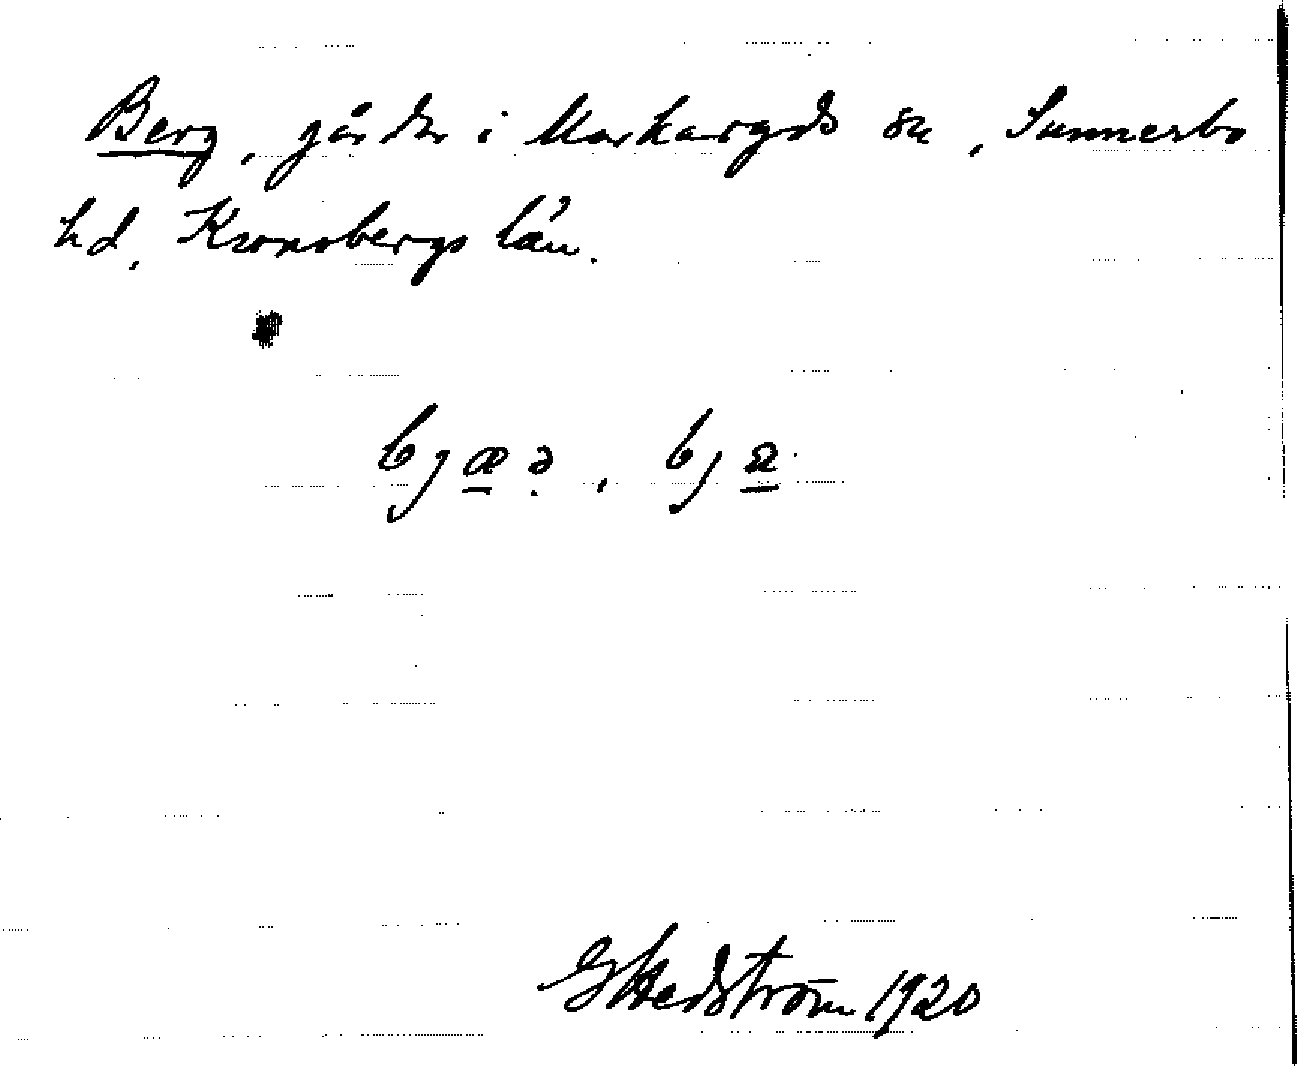 Berg, gårdar i Markaryds sn, Sunnerbo
hd, Kronobergs län.
G Hedström 1920